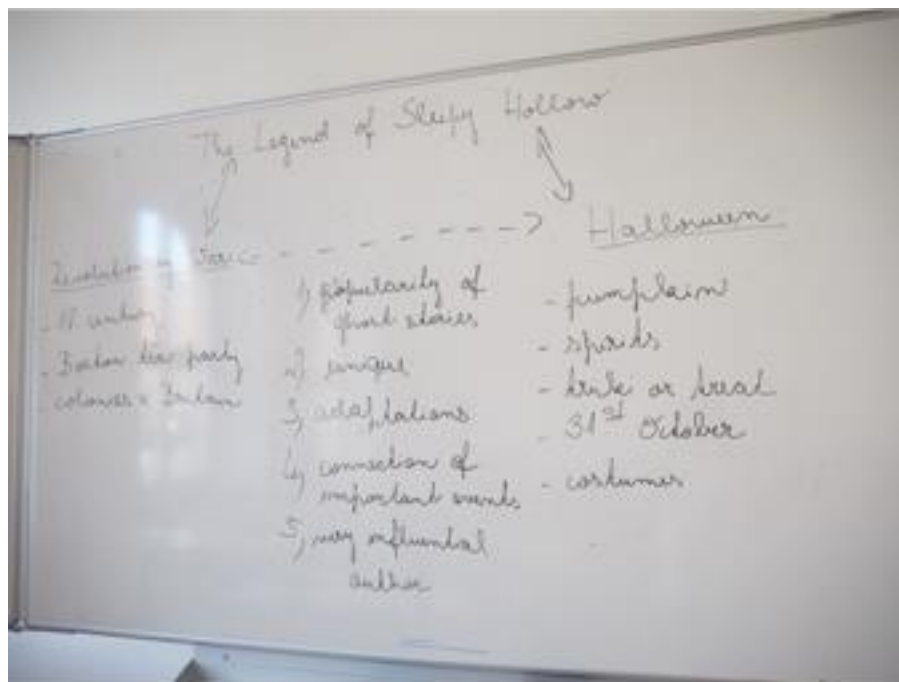 The Legend of Sleepy Hollow
Revolutionary War
- - - - - - ->
Halloween
- century
- Boston tea party
- colonies × Britain
1) popularity of
ghost stories
2) unique
3) adaptations
4) connection of
important events
5) very influential
author
- pumpkin
- spirits
- trick or treat
- 31st October
- costumes